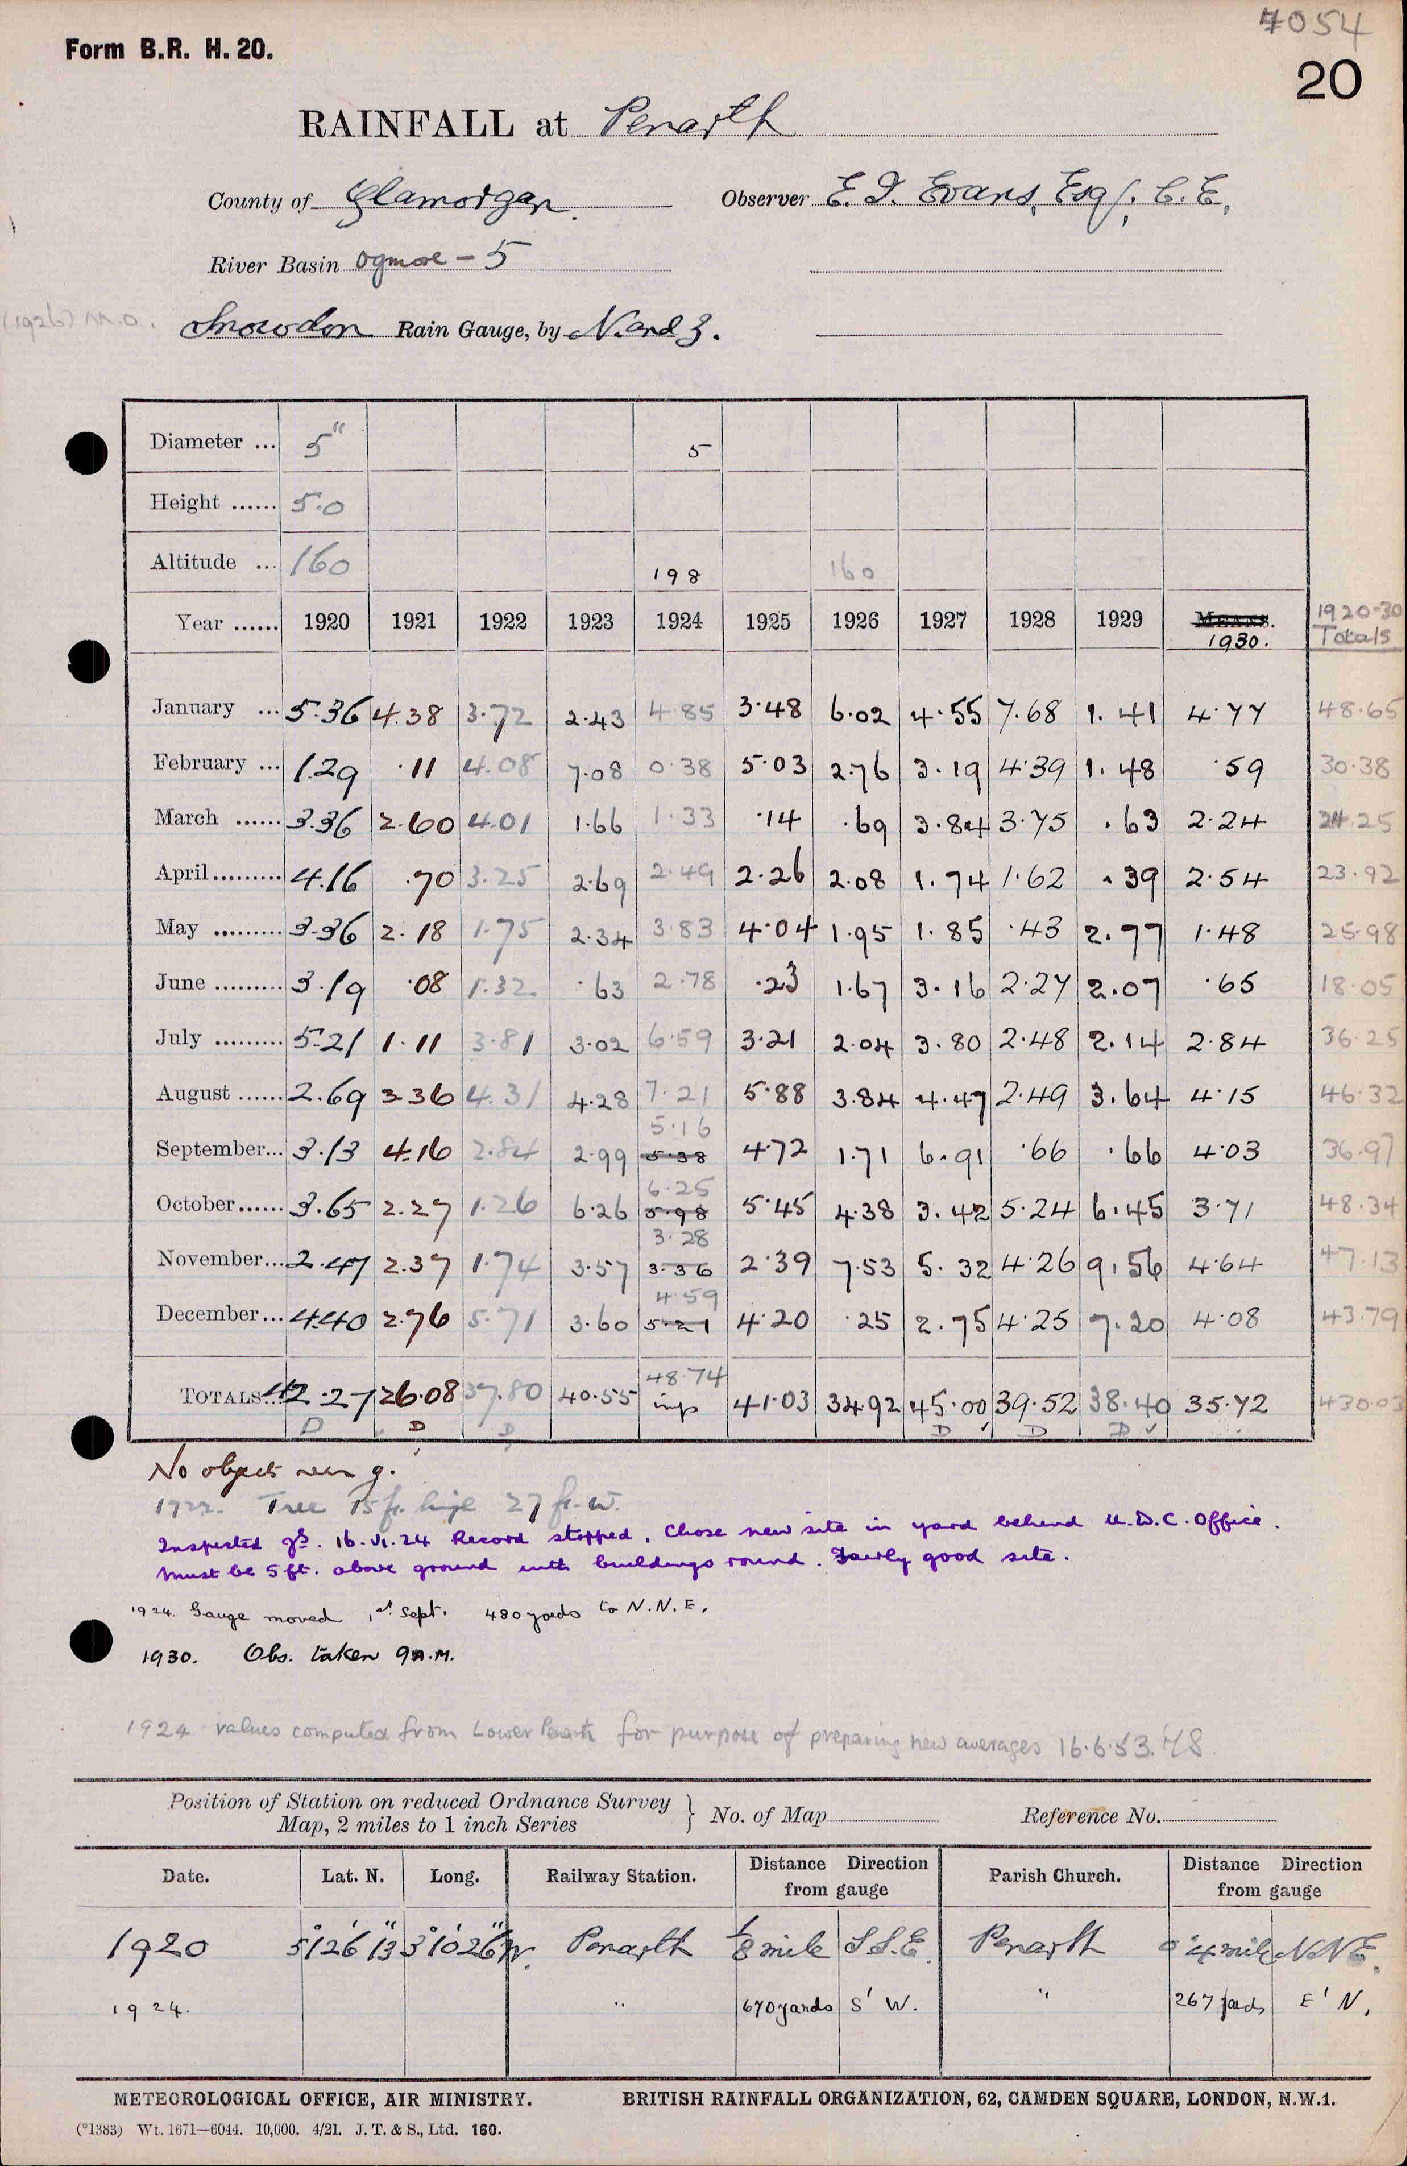 7054
Form B.R. H. 20.
20
RAINFALL at Penarth
County of Glamorgan. Observer E. I. Evans, Esq., C.E,
River Basin Ogmore - 5
(1926) M.O. Snowdon Rain Gauge, by N. and Z.
Diameter ... 5" 5
Height ...... 5.0
Altitude ... 160 198 160
Year ...... 1920 1921 1922 1923 1924 1925 1926 1927 1928 1929 MEANS. 1930. 1920-30 Totals
January ... 5.36 4.38 3.72 2.43 4.85 3.48 6.02 4.55 7.68 1.41 4.77 48.65
February ... 1.29 .11 4.08 7.08 0.38 5.03 2.76 3.19 4.39 1.48 .59 30.38
March ...... 3.36 2.60 4.01 1.66 1.33 .14 .69 3.84 3.75 .63 2.24 24.25
April ......... 4.16 .70 3.25 2.69 2.49 2.26 2.08 1.74 1.62 .39 2.54 23.92
May ......... 3.36 2.18 1.75 2.34 3.83 4.04 1.95 1.85 .43 2.77 1.48 25.98
June ......... 3.19 .08 1.32 .63 2.78 .23 1.67 3.16 2.27 2.07 .65 18.05
July ......... 5.21 1.11 3.81 3.02 6.59 3.21 2.04 3.80 2.48 2.14 2.84 36.25
August ...... 2.69 3.36 4.31 4.28 7.21 5.88 3.84 4.47 2.49 3.64 4.15 46.32
5.16
September... 3.13 4.16 2.84 2.99 5.38 4.72 1.71 6.91 .66 .66 4.03 36.97
6.25
October...... 3.65 2.27 1.26 6.26 5.98 5.45 4.38 3.42 5.24 6.45 3.71 48.34
3.28
November... 2.47 2.37 1.74 3.57 3.36 2.39 7.53 5.32 4.26 9.56 4.64 47.13
4.59
December... 4.40 2.76 5.71 3.60 5.21 4.20 .25 2.75 4.25 7.20 4.08 43.79
48.74
TOTALS... 42.27 26.08 37.80 40.55 imp 41.03 34.92 45.00 39.52 38.40 35.72 430.03
D D D D D D
No object near g.
1922. Tree 15 ft. high 27 ft. W.
Inspected gS. 16.VI.24 Record stopped. Chose new site in yard behind U.D.C. Office.
Must be 5 ft. above ground with buildings round. Fairly good site.
1924. Gauge moved 1st Sept. 480 yards to N.N.E.
1930. Obs. taken 9 A.M.
1924 values computed from Lower Penarth for purpose of preparing new averages 16.6.53.
Position of Station on reduced Ordnance Survey Map, 2 miles to 1 inch Series } No. of Map Reference No.
Date. Lat. N. Long. Railway Station. Distance Direction from gauge Parish Church. Distance Direction from gauge
1920 51° 26' 13" 3° 10' 26" W. Penarth 1/8 mile S.S.E. Penarth 0.4 mile N.N.E.
1924. " 670 yards S' W. " 267 yards E' N.
METEOROLOGICAL OFFICE, AIR MINISTRY. BRITISH RAINFALL ORGANIZATION, 62, CAMDEN SQUARE, LONDON, N.W.1.
(*1383) Wt. 1671—6044. 10,000. 4/21. J. T. & S., Ltd. 160.